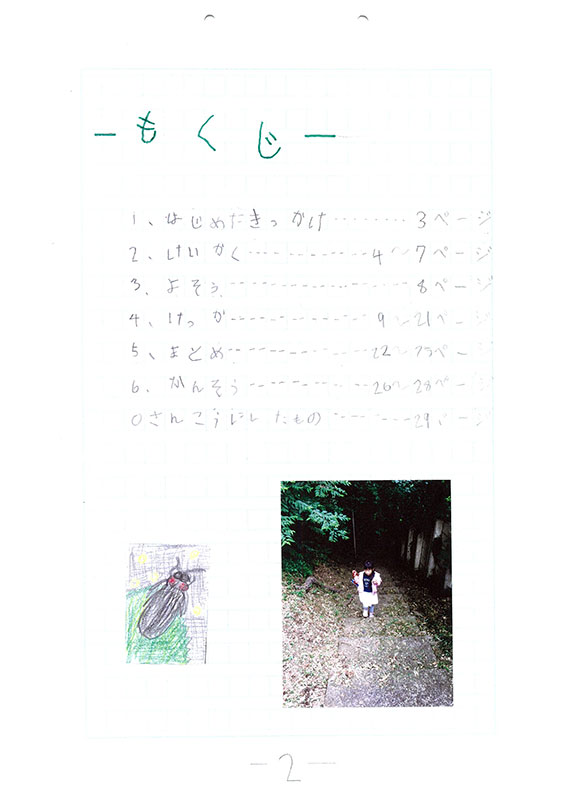 ーもくじー
1、はじめたきっかけ………3ページ
2、けいかく…………4〜7ページ
3、よそう…………8ページ
4、けっか…………9〜21ページ
5、まとめ…………22〜25ページ
6、かんそう…………26〜28ページ
○さんこうにしたもの………29ページ
ー2ー